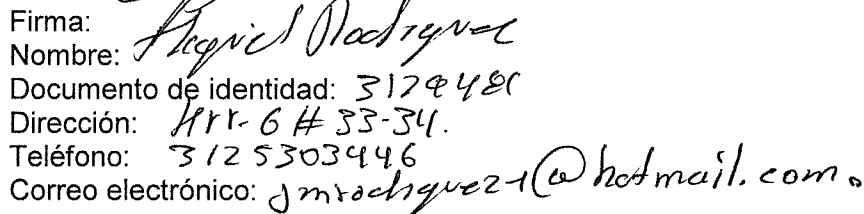 Firma:
Nombre: Rodriguez
Documento de identidad:
Dirección: # 33-34.
Teléfono: 3125303446
Correo electrónico: jmrodriguez-1@hotmail.com.